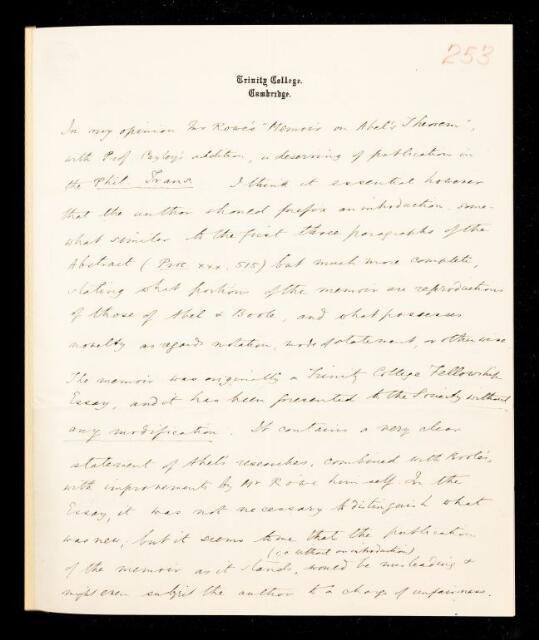 253
Trinity College.
Cambridge.
In my opinion Mr Rowe's "Memoir on Abel's Theorem",
with Prof Cayley's addition, is deserving of publication in
the Phil. Trans. I think it essential however
that the author should prefix an introduction some-
what similar to the first three paragraphs of the
Abstract (Proc. xxx. 515) but much more complete,
stating what portions of the memoir are reproductions
of those of Abel & Boole, and what possesses
novelty as regards notation, mode of statement, or otherwise
The memoir was originally a Trinity College Fellowship
Essay, and it has been presented to the Society without
any modification. It contains a very clear
statement of Abel's researches, combined with Boole's,
with improvements by Mr Rowe himself. In the
Essay, it was not necessary to distinguish what
was new; but it seems to me that the publication
(i.e. without an introduction)
of the memoir as it stands, would be misleading &
might even subject the author to a charge of unfairness.